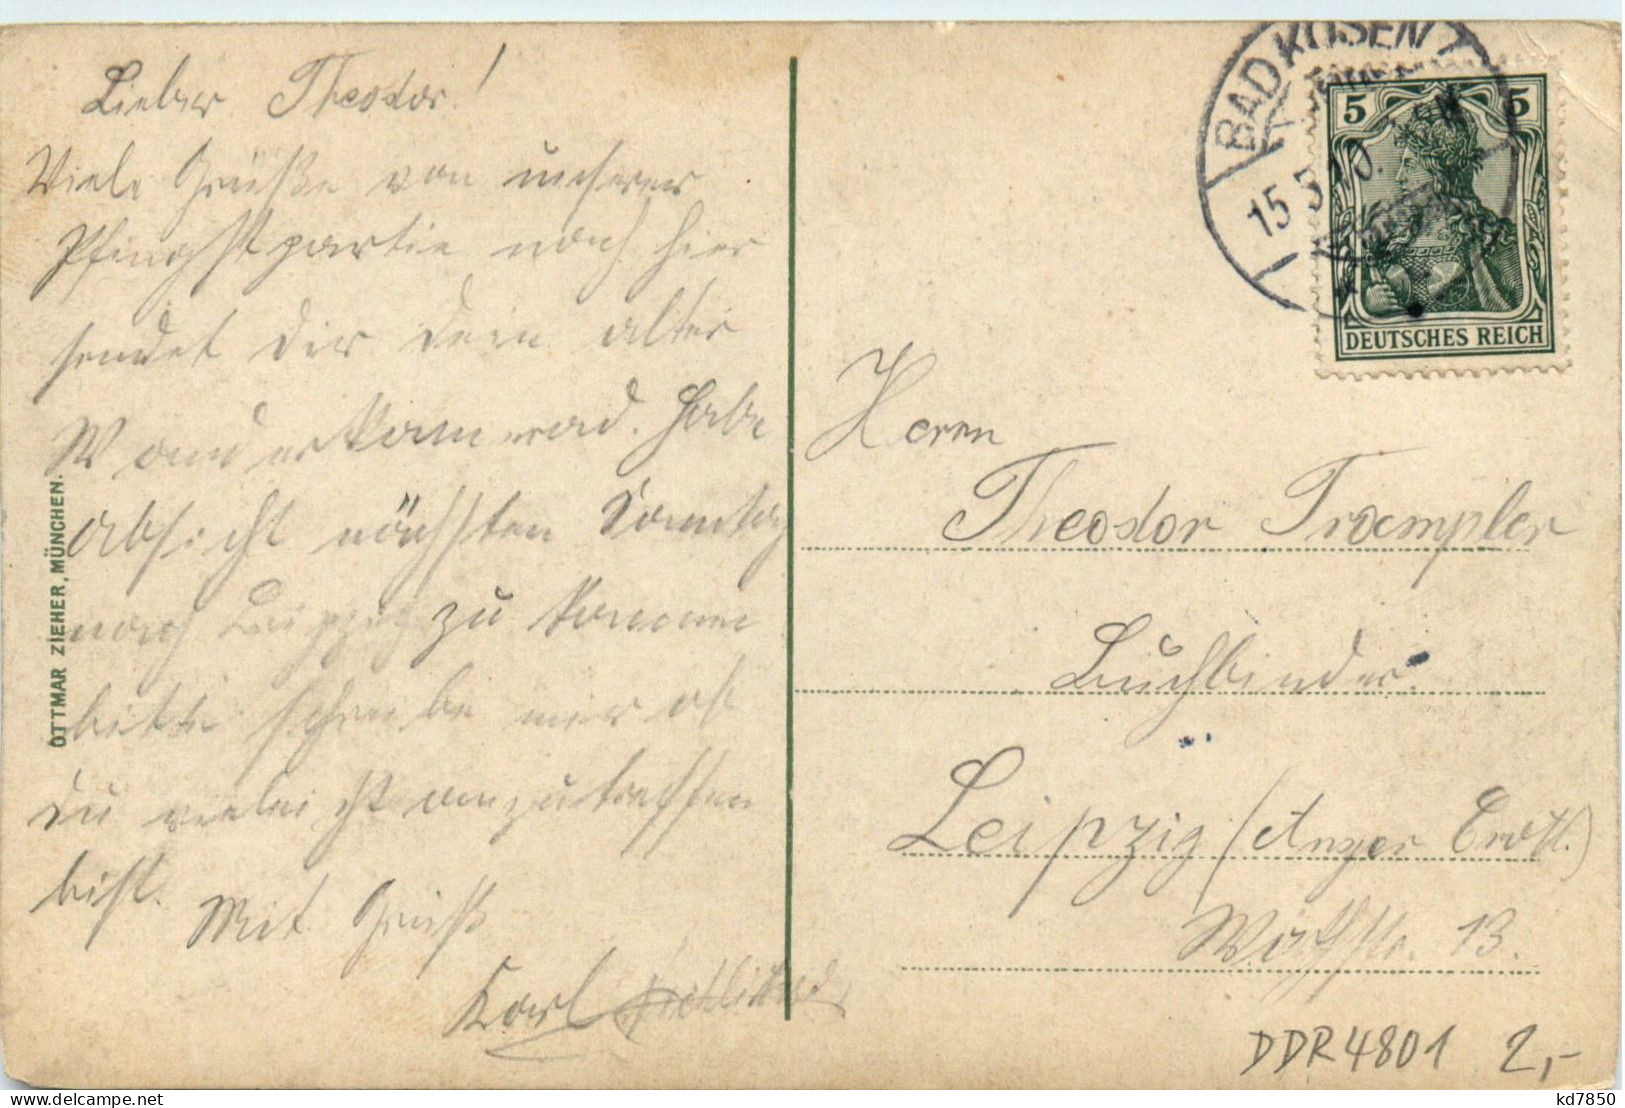 Lieber Theodor!
Viele Grüße von unserer
Pfingstpartie nach hier
sendet Dir Dein alter
Wanderkamerad. Habe
Absicht nächsten Sonntag
nach Leipzig zu kommen
bitte schreibe mir ob
Du vielleicht anzutreffen
bist. Mit Gruß
Karl
OTTMAR ZIEHER, MÜNCHEN.
BAD KÖSEN
15.5.10.
5 5
DEUTSCHES REICH
Herrn
Theodor Traempler
Buchbinder.
Leipzig (Anger Crott.)
13.
DDR 4801 2,-
kd7850